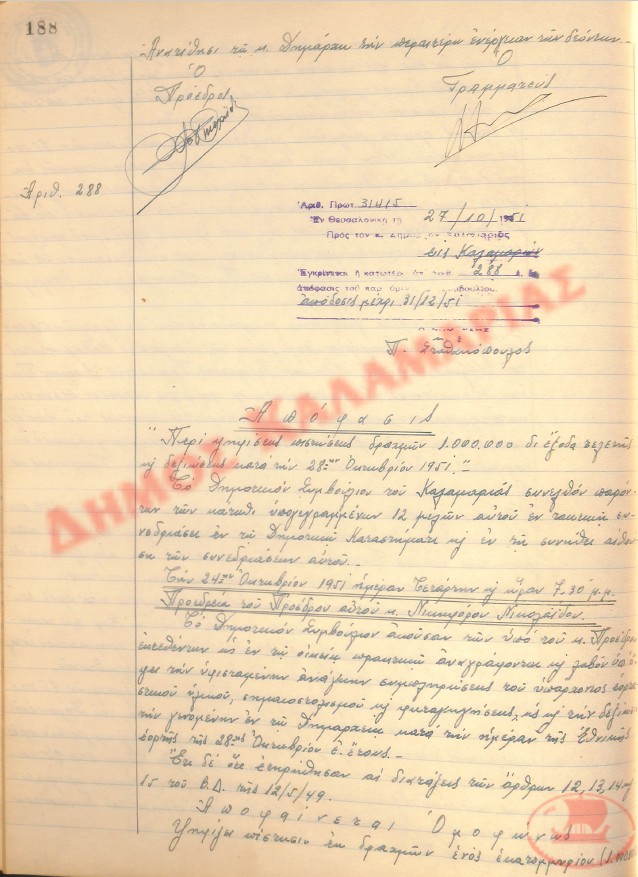 188
Ἀνατίθησι τῷ κ. Δημάρχῳ τὴν περαιτέρω ἐνέργειαν τῶν δεόντων.-
Ὁ Ὁ
Πρόεδρος Γραμματεύς
Ἀριθ. 288
Ἀριθ. Πρωτ. 31415
Ἐν Θεσσαλονίκῃ τῇ 27/10/1951
Πρὸς τὸν κ. Δήμαρχον Καλαμαριᾶς
εἰς Καλαμαριάν
Ἐγκρίνεται ἡ κατωτέρω ὑπ' ἀριθ. 288
ἀπόφασις τοῦ
ἀπόδοσις μέχρι 31/12/51
Π.
ΔΗΜΟΣ ΚΑΛΑΜΑΡΙΑΣ
Ἀπόφασις
"Περὶ ψηφίσεως πιστώσεως δραχμῶν 1.000.000 δι' ἔξοδα τελετῆς
κ̀ δεξιώσεως κατὰ τὴν 28ην Ὀκτωβρίου 1951."-
Τὸ Δημοτικὸν Συμβούλιον τοῦ Καλαμαριᾶς συνελθὸν παρόν-
των τῶν κάτωθι ὑπογεγραμμένων 12 μελῶν αὐτοῦ ἐν τακτικῇ συ-
νεδριάσει ἐν τῷ Δημοτικῷ Καταστήματι κ̀ ἐν τῇ συνήθει αἰθού-
σῃ τῶν συνεδριάσεων αὐτοῦ.-
Τὴν 24ην Ὀκτωβρίου 1951 ἡμέραν Τετάρτην κ̀ ὥραν 7.30 μ.μ.
Προεδρείᾳ τοῦ Προέδρου αὐτοῦ κ. Νικηφόρου Νικολαΐδου.
Τὸ Δημοτικὸν Συμβούλιον ἀκοῦσαν τῶν ὑπὸ τοῦ κ. Προέδρου
ἐκτεθέντων ὡς ἐν τῷ οἰκείῳ πρακτικῷ ἀναγράφονται κ̀ λαβὸν ὑπ' ὄ-
ψει τὴν ὑφισταμένην ἀνάγκην συμπληρώσεως τοῦ ὑπάρχοντος ἑορτα-
στικοῦ ὑλικοῦ, σημαιοστολισμοῦ κ̀ φωταγωγήσεως, ὡς κ̀ τὴν δεξίωσιν
τὴν γενομένην ἐν τῷ Δημαρχείῳ κατὰ τὴν ἡμέραν τῆς Ἐθνικῆς
ἑορτῆς τῆς 28ης Ὀκτωβρίου ἐ. ἔτους.-
Ἔτι δὲ ὅτι ἐτηρήθησαν αἱ διατάξεις τῶν ἄρθρων 12, 13, 14 κ̀
15 τοῦ Β.Δ. τῆς 12/5/49.
Ἀποφαίνεται Ὁμοφώνως
Ψηφίζει πίστωσιν ἐκ δραχμῶν ἑνὸς ἑκατομμυρίου